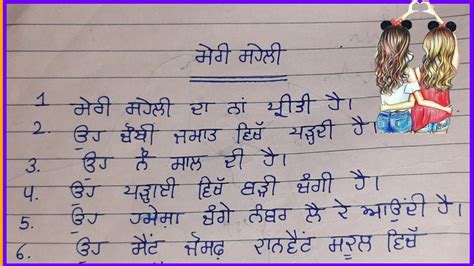 ਮੇਰੀ ਸਹੇਲੀ
1 ਮੇਰੀ ਸਹੇਲੀ ਦਾ ਨਾਂ ਪ੍ਰੀਤੀ ਹੈ।
2. ਉਹ ਚੌਥੀ ਜਮਾਤ ਵਿਚੱ ਪੜ੍ਹਦੀ ਹੈ।
3. ਉਹ ਨੌ ਸਾਲ ਦੀ ਹੈ।
4. ਉਹ ਪੜ੍ਹਾਈ ਵਿਚੱ ਬੜੀ ਚੰਗੀ ਹੈ।
5. ਉਹ ਹਮੇਸ਼ਾ ਚੰਗੇ ਨੰਬਰ ਲੈ ਕੇ ਆਉਂਦੀ ਹੈ।
6. ਉਹ ਸੈਂਟ ਸਕੂਲ ਵਿਚੱ